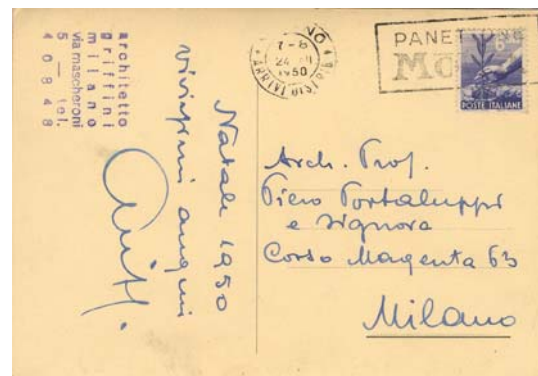 architetto
griffini
milano
via mascheroni
5 — tel.
40848
Natale 1950
vivissimi auguri
7-8
24
1950
ARRIVI DISTRIB
PANET
MO
POSTE ITALIANE
Arch. Prof.
Piero Portaluppi
e Signora
Corso Magenta 63
Milano